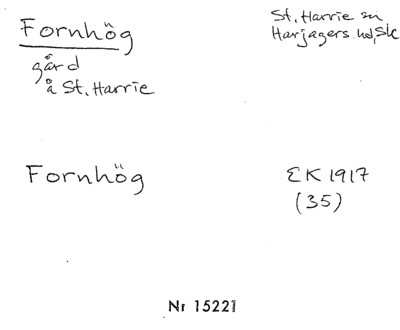 Fornhög
gård
å St. Harrie
St. Harrie sn
Harjagers hd, Sk
Fornhög
EK 1917
(35)
Nr 15221